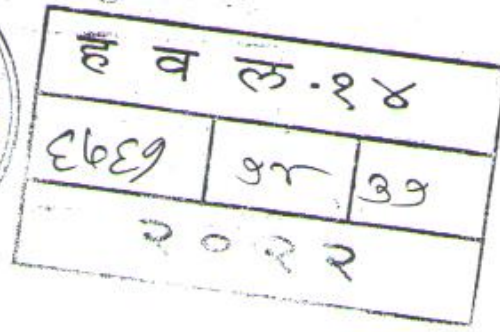 ह व ल.१४
६७६१ १८ ३१
२०२२